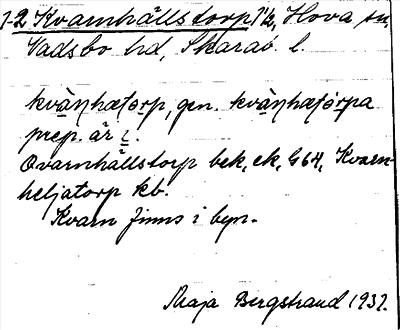 1-2 Kvarnhällstorp 1/2, Hova sn,
Vadsbo hd, Skarab. l.
kvàn̥hæt̥ɔrp, gen. kvàn̥hæt̥ɔ́rpa
prep. är i.
Qvarnhällstorp bek, ek, G 64, Kvarn-
heljatorp kb.
Kvarn finns i byn.
Maja Bergstrand 1937.